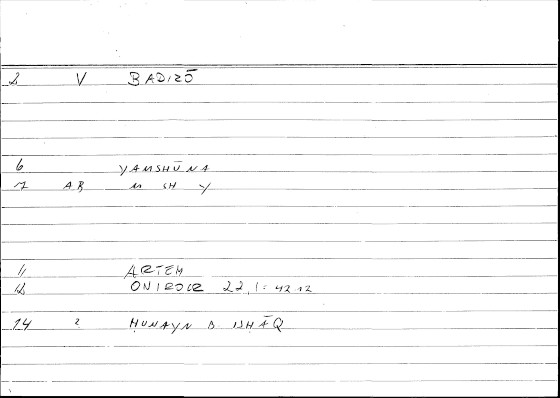 2 V BADIZŌ
6 YAMSHŪNA
7 AB M SH Y
11 ARTEM
12 ONIROCR 22,1 = 42 12
14 2 ḤUNAYN B ISḤĀQ